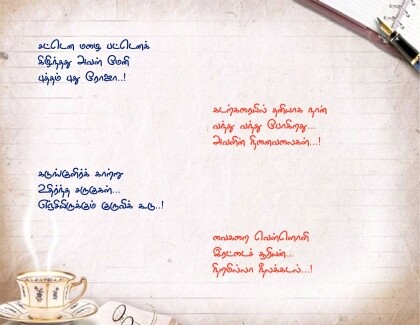 சட்டென மழை பட்டெனக்
கிழிந்தது அவள் மேனி
புத்தம் புது ரோஜா..!
கடற்கரையில் தனியாக நான்
வந்து வந்து போகிறது...
அவளின் நினைவலைகள்...!
கடுங்குளிர்க் காற்று
உதிர்ந்த சருகுகள்...
எஞ்சியிருக்கும் குருவிக் கூடு..!
வைகறை வெள்ளொளி
இரட்டைச் சூரியன்...
நிறமில்லா நீலக்கடல்...!